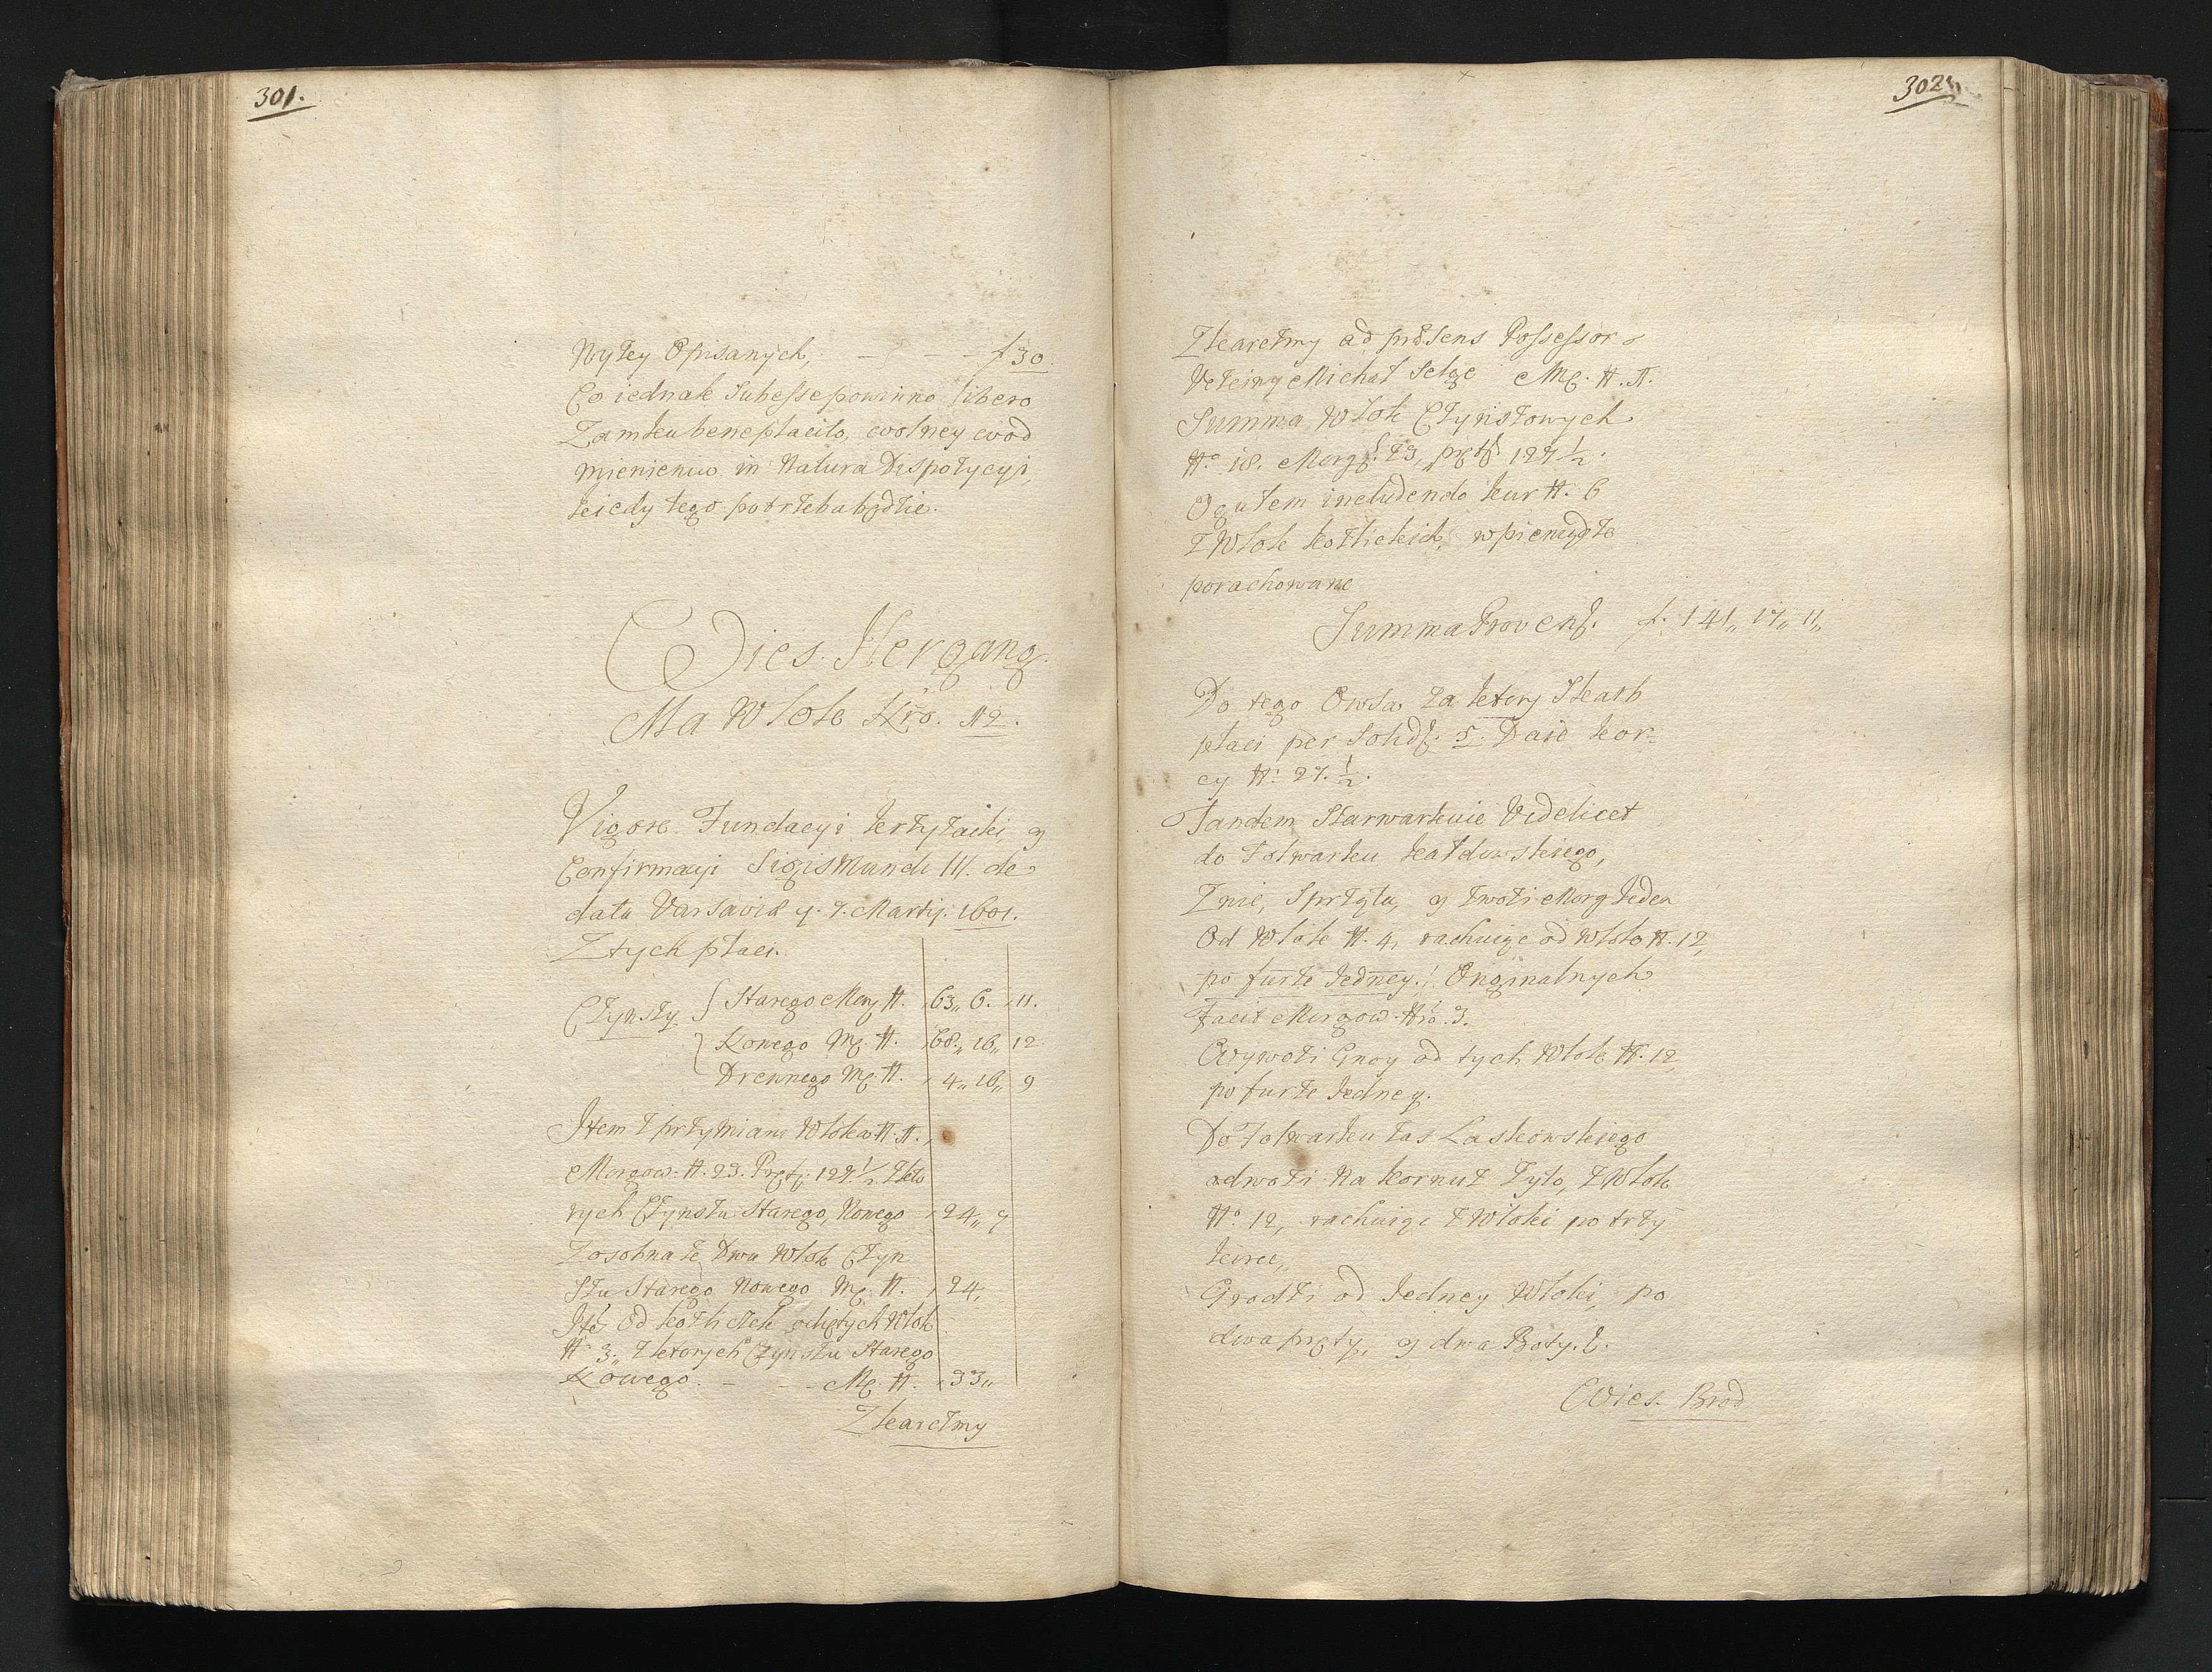 301.
Nyżey Opisanych, — — — f 30.
Co iednak Subesse powinno libero
Zamku beneplacito, wolney wod
mienieniu in Natura Dispozycyi,
kiedy tego potrzeba będzie.
Wies. Hergang.
Ma Włok Nro. 12.
Vigore Fundacyi Krzyżacki, y
Confirmacyi Sigismundi III. de
data Varsaviæ 7. Martij. 1601.
Z tych płaci.
Czynszu Starego Mg N. 63,, 6. 11.
Nowego Mg. N. 68,, 16,, 12
Drewnego Mg N. 4,, 16,, 9
Item z przymiaru Włokow N.
Morgow. N. 23. Pręt. 127 1/2 Z kto
rych Czynszu Starego, Nowego 24,, 9
Zosobna ze Dwu Włok Czyn
szu Starego Nowego Mg. N. 24,
Od Kozlickich Włok
N. 3,, Z ktorych Czynszu Starego
Nowego. — — Mg. N. 33,,
Z karczmy
302
Z karczmy ad præsens Possessor
Uczciwy Michał Selge Mg. N.
Summa Włok Czynszowych
No 18. Morg. 23, pręt 127 1/2.
Ogułem includendo kur N. 6
z Włok kozlickich, w pieniądze
porachowane
Summa Provent. f. 141,, 17,, 11,,
Do tego Owsa za ktory Skarb
płaci per Solid. 5. Daie kor-
cy N. 27. 1/2.
Tandem Szarwarkuie Videlicet
do Folwarku Kałdowskiego,
Znie, Sprząta, y zwozi Morg Jeden
Od Włok N. 4, rachuiąc od Włok N. 12,
po furze Jedney. Orginalnych
Facit Morgow. Nro. 3.
Wywozi Gnoy od tych Włok N. 12
po furze Jedney.
Do Folwarku zas Laskowskiego
odwozi Na kornut Żyto, z Włok
No 12, rachuiąc z Włoki po trzy
korce,
Grodzi od Jedney Włoki, po
dwa pręty, y dwa Boty.
Wies. Brod